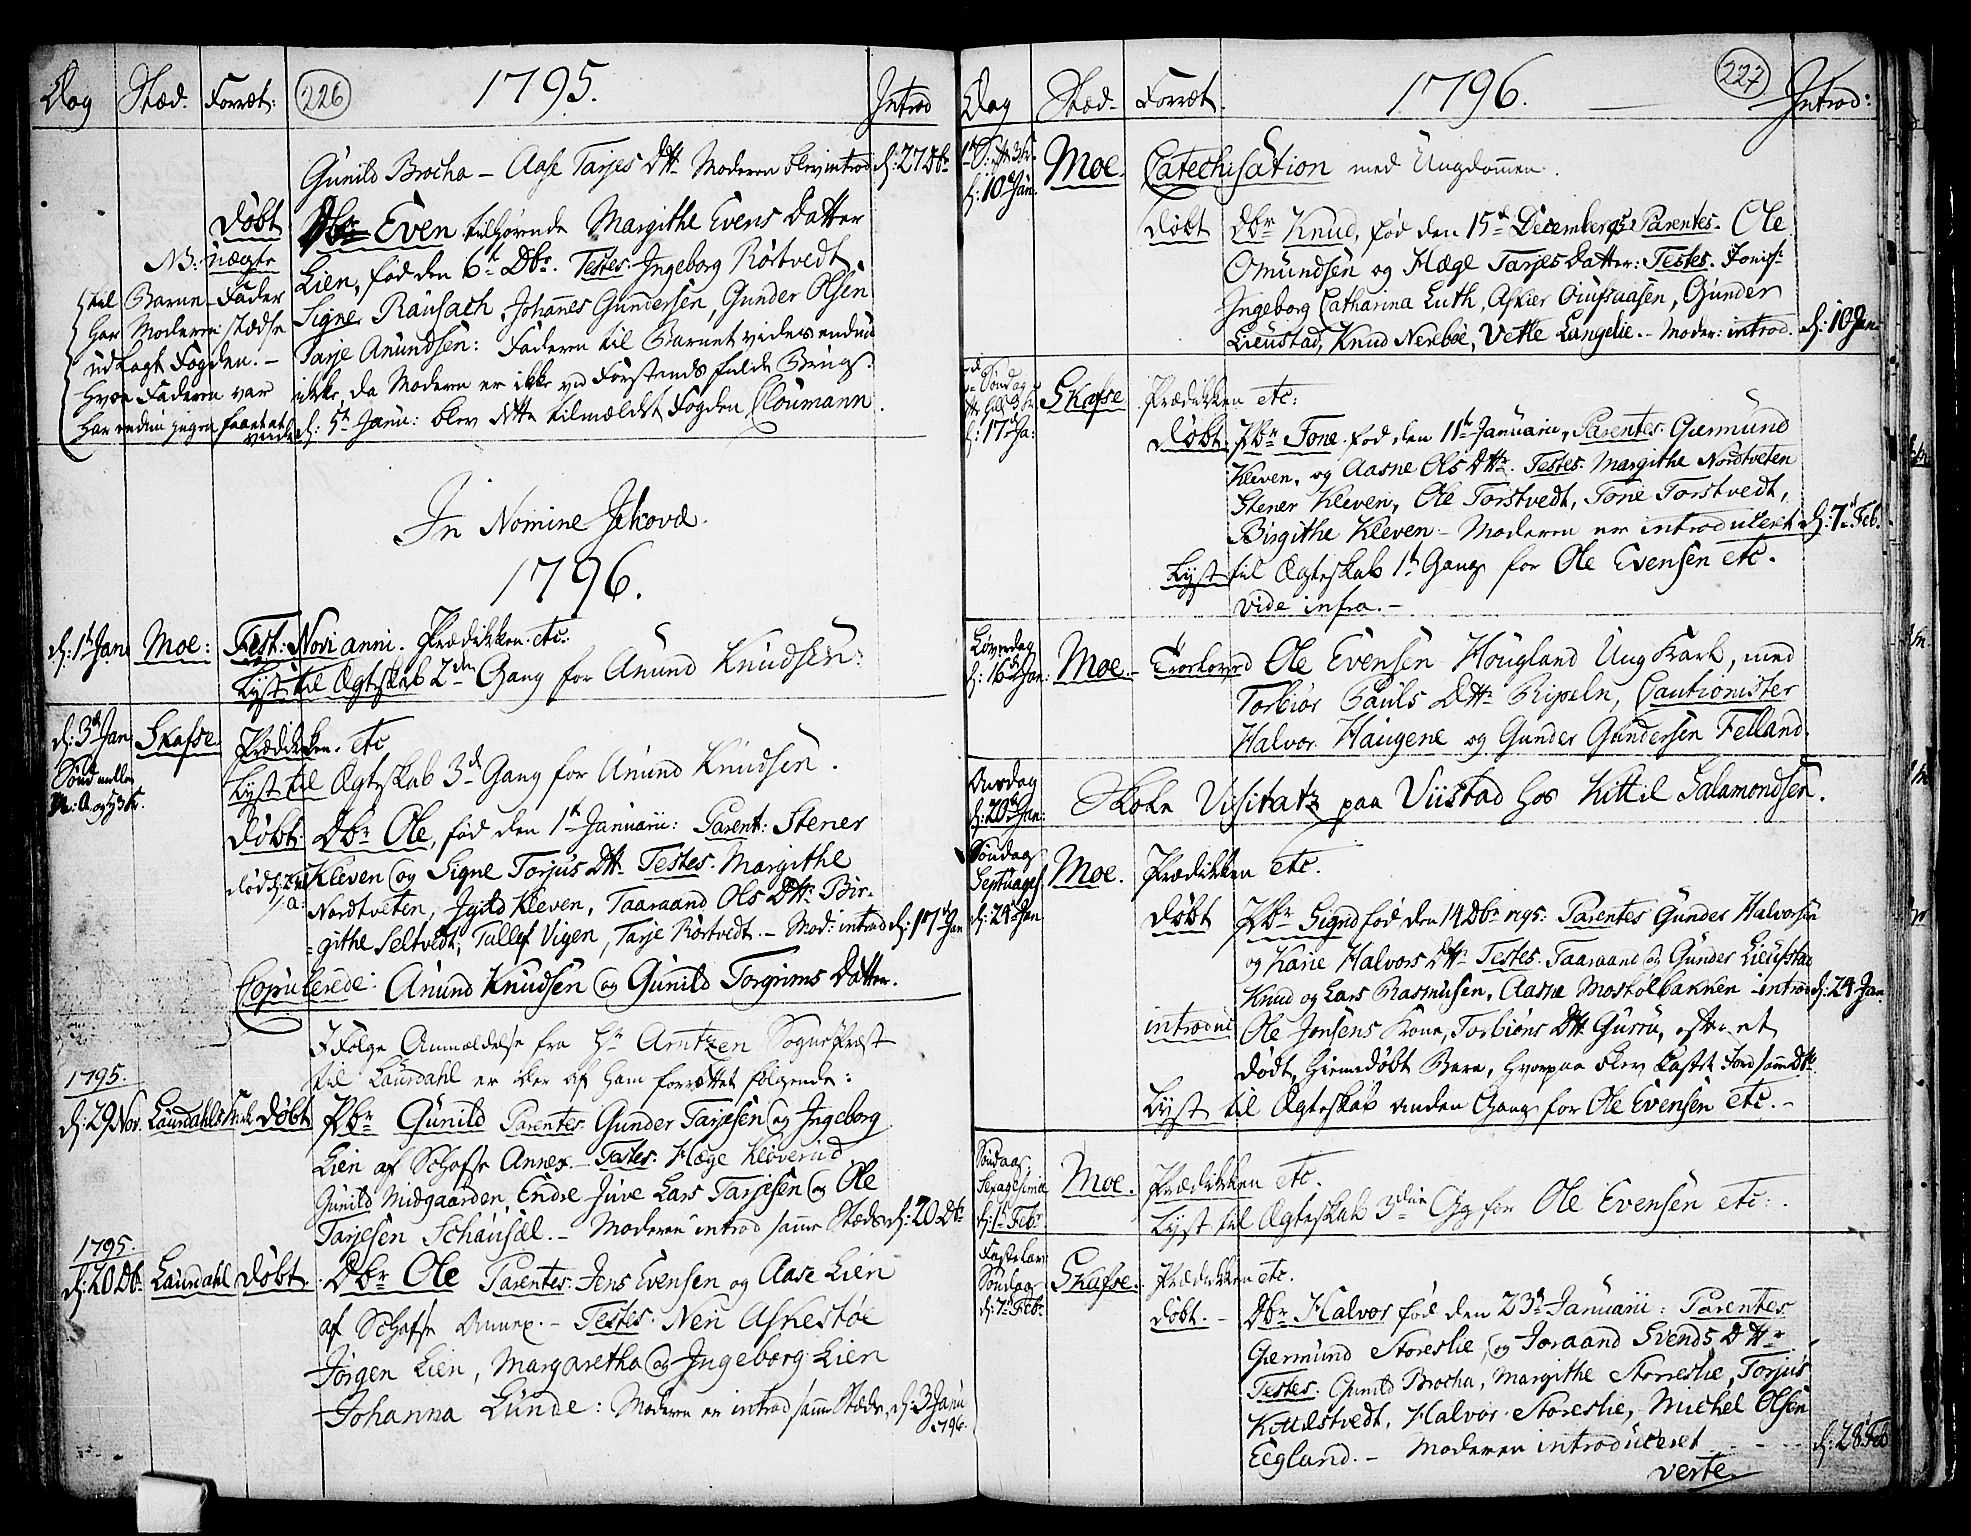 Dag Stæd. Forret: 226 1795. Introd
Gunild Brocha – Aase Tarjes Dtt. Moderen blev introd d: 27 Dbr
Døbt Dbr Even tilhørende Margithe Evens Datter
Lien, fød den 6t Dbr. Testes: Ingeborg Rørtvedt
Signe Rausach, Johannes Gundersen, Gunder Olsen
Tarje Anundsen: Faderen til Barnet vides endnu
ikke, da Moderen er ikke ved Forstands fulde Brug:
d: 5t Janu: blev dette tilmældt Fogden Cloumann.
NB: Uægte
til Barne-Fader
har Moderen stædse
udlagt Fogden. –
Hvem Faderen var
har endnu ingen faaet at
vide
In Nomine Jehovæ.
1796.
d: 1t Jan Moe: Fest: Novi anni. Prædikken etc:
Lyst til Ægteskab 2den Gang for Anund Knudsen:
d: 3d Jan Skafse Prædikken. etc
Lyst til Ægteskab 3d Gang for Anund Knudsen.
Døbt: Dbr Ole, fød den 1t Januarii: Parent: Stener
Kleven og Signe Torjus Dtt. Testes. Margithe
Nordtveten, Kleven, Taaraand Ols Dtt. Bir-
githe Seltvedt, Tallef Vigen, Tarje Rørtvedt. – Mod: introd d: 17t Jan
Copulerede: Anund Knudsen og Gunild Torgrims Datter.
I Følge Anmældelse fra Hr Arntzen SognePræst
til Laurdahl er der af ham forrettet følgende:
1795.
d: 29 Nov. Laurdahls Kirke Døbt Pbr Gunild Parentes Gunder Tarjesen og Ingeborg
Lien af Schafse Annex. – Testes: Hæge Kløverud
Gunild Midgaarden, Endre Juve Lars Tarjesen og Ole
Tarjesen Schansæl. – Moderen introd samme Stæds d: 20 Dbr
1795.
d: 20 Dbr Laurdahl Døbt. Dbr Ole Parentes: Jens Evensen og Aase Lien
af Schafse Annex. – Testes: Neri Asnestøe
Jørgen Lien, Margaretha og Ingeborg Lien
Johanna Lunde: Moderen er introd samme Stæds, d: 3 Janu
1796.
Dag Stæd. Forret. 1796. 227 Introd:
d: 10de Jan: Moe. Catechisation med Ungdommen.
Døbt Dbr Knud, fød den 15de December 95 Parentes. Ole
Omundsen og Hæge Tarjes Datter: Testes.
Ingeborg Catharina Luth, Gunder
Lieustad, Knud Nerebøe, Vetle Langelie. – Moder: introd. d: 10 Jan
Søndag
d: 17d Ja: Skafse Prædikken etc:
Døbt: Pbr Tone fød den 11t Januarii, Parentes Giermund
Kleven, og Aasne Ols Dtt. Testes. Margithe Nordtveten
Stener Kleven, Ole Torstvedt, Tone Torstvedt,
Birgithe Kleven – Moderen er introduceret d: 7d Feb.
Lyst til Ægteskab 1t Gang for Ole Evensen etc.
vide infra. –
Løverdag
d: 16d Jan: Moe. – Trolovet Ole Evensen Hougland Ung Karl, med
Torbiør Pauls Dtt Ripeln, Cautionister
Halvor Haugene og Gunder Gundersen Felland.
Onsdag
d: 20d Jan: Skole Visitatz paa Viistad hos Kittil Salamondsen.
Søndag
Septuages.
d: 24d Jan Moe. Prædikken etc.
Døbt Pbr Signe fød den 14 Dbr 1795: Parentes Gunder Halvorsen
og Karie Halvors Dtt. Testes. Taaraand og Gunder Lieustad
Knud og Lars Rasmusen, Aasne – introd d: 24 Jan.
introduc Ole Jonsens Kone, Torbiøns Dtt Gurru, efter et
dødt, hiemedøbt Barn, hvorpaa blev kastet Jord samme Dtto
Lyst til Ægteskab anden Gang for Ole Evensen etc. –
Søndag
Sexagesima
d: Febr Moe. Prædikken etc.
Lyst til Ægteskab 3die Gg for Ole Evensen etc:.
Fastelavns
Søndag
d: 7d Febr Skafse. Prædikken etc.
Døbt. – Dbr Halvor fød den 23d Januarii: Parentes
Giermund Storeslie, og Joraand Svends Dtt
Testes. Gunild Brocha, Margithe Storreslie, Torjus
Halvor Storeslie, Michel Olsen
Egland. – Moderen introduceret - - - d: 28 Feb
verte